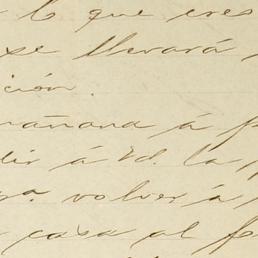 lo que eres
se llevará
ción.
mañana á
dir á Vd. la
volver á
casa al